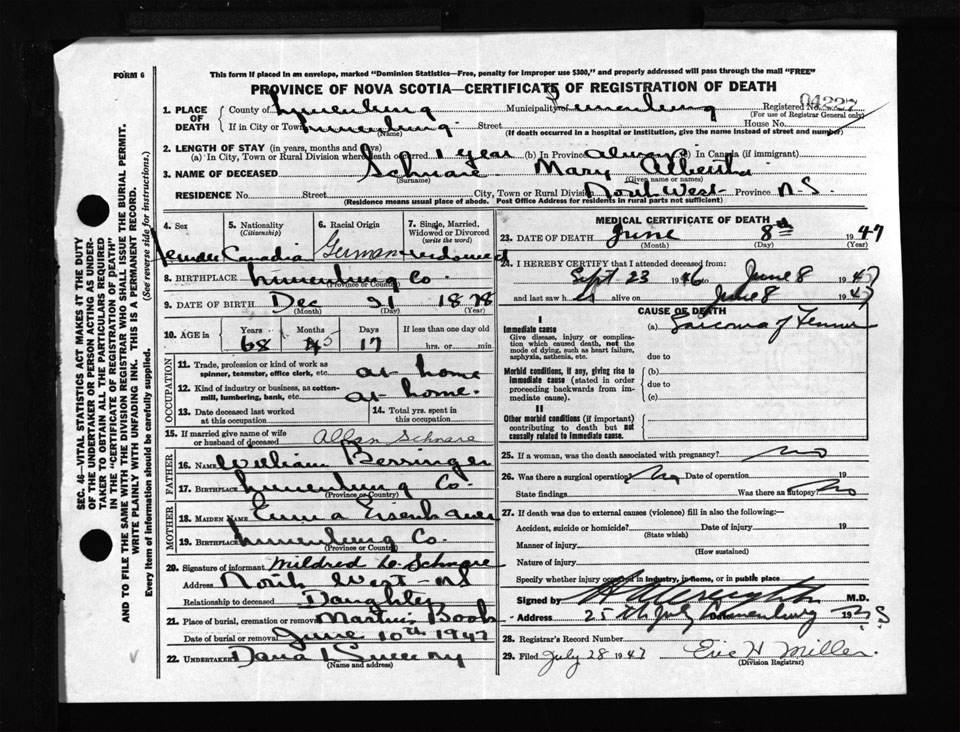 FORM 6
This form if placed in an envelope, marked "Dominion Statistics—Free, penalty for improper use $300," and properly addressed will pass through the mail "FREE"
PROVINCE OF NOVA SCOTIA—CERTIFICATE OF REGISTRATION OF DEATH
1. PLACE OF DEATH
County of Lunenburg Municipality of Lunenburg Registered No. 04227
(For use of Registrar General only)
If in City or Town Lunenburg Street House No.
(Name) (If death occurred in a hospital or institution, give the name instead of street and number)
2. LENGTH OF STAY (in years, months and days)
(a) In City, Town or Rural Division where death occurred 1 year (b) In Province always (c) In Canada (if immigrant)
3. NAME OF DECEASED Schnare Mary Albertha
(Surname) (Given name or names)
RESIDENCE No. Street City, Town or Rural Division North West Province N.S.
(Residence means usual place of abode. Post Office Address for residents in rural parts not sufficient)
4. Sex 5. Nationality 6. Racial Origin 7. Single, Married, Widowed or Divorced
(Citizenship) (write the word)
Canadia German widowed
8. BIRTHPLACE Lunenburg Co
(Province or Country)
9. DATE OF BIRTH Dec 21 1878
(Month) (Day) (Year)
10. AGE in Years Months Days If less than one day
68 5 17 hrs. or min
OCCUPATION
11. Trade, profession or kind of work as spinner, teamster, office clerk, etc. at home
12. Kind of industry or business, as cotton-mill, lumbering, bank, etc. at home.
13. Date deceased last worked at this occupation
14. Total yrs. spent in this occupation
15. If married give name of wife or husband of deceased Allan Schnare
FATHER
16. NAME William Berringer
17. BIRTHPLACE Lunenburg Co.
(Province or Country)
MOTHER
18. MAIDEN NAME Emma Eisenhauer
19. BIRTHPLACE Lunenburg Co.
(Province or Country)
20. Signature of informant Mildred Schnare
Address North West NS
Relationship to deceased Daughter
21. Place of burial, cremation or removal Martins Brook
Date of burial or removal June 10th 1947
22. UNDERTAKER
(Name and address)
MEDICAL CERTIFICATE OF DEATH
23. DATE OF DEATH June 8th 1947
(Month) (Day) (Year)
24. I HEREBY CERTIFY that I attended deceased from:
Sept 23 1946 to June 8 1947
and last saw h alive on June 8 1947
CAUSE OF DEATH
I
Immediate cause (a) Sarcoma of Femur
Give disease, injury or complication which caused death, not the mode of dying, such as heart failure, asphyxia, asthenia, etc.
due to
Morbid conditions, if any, giving rise to immediate cause (stated in order proceeding backwards from immediate cause).
(b)
due to
(c)
II
Other morbid conditions (if important) contributing to death but not causally related to immediate cause.
25. If a woman, was the death associated with pregnancy? no
26. Was there a surgical operation? no Date of operation 19
State findings Was there an autopsy? no
27. If death was due to external causes (violence) fill in also the following:—
Accident, suicide or homicide? Date of injury 19
(State which)
Manner of injury
(How sustained)
Nature of injury
Specify whether injury occurred in industry, in home, or in public place
Signed by M.D.
Address 25th July Lunenburg 19
28. Registrar's Record Number
29. Filed July 28 1947 Eric H Miller.
(Division Registrar)
SEC. 46—VITAL STATISTICS ACT MAKES IT THE DUTY
OF THE UNDERTAKER OR PERSON ACTING AS UNDER-
TAKER TO OBTAIN ALL THE PARTICULARS REQUIRED
IN THE "CERTIFICATE OF REGISTRATION OF DEATH"
AND TO FILE THE SAME WITH THE DIVISION REGISTRAR WHO SHALL ISSUE THE BURIAL PERMIT.
WRITE PLAINLY WITH UNFADING INK. THIS IS A PERMANENT RECORD.
Every item of information should be carefully supplied. (See reverse side for instructions.)